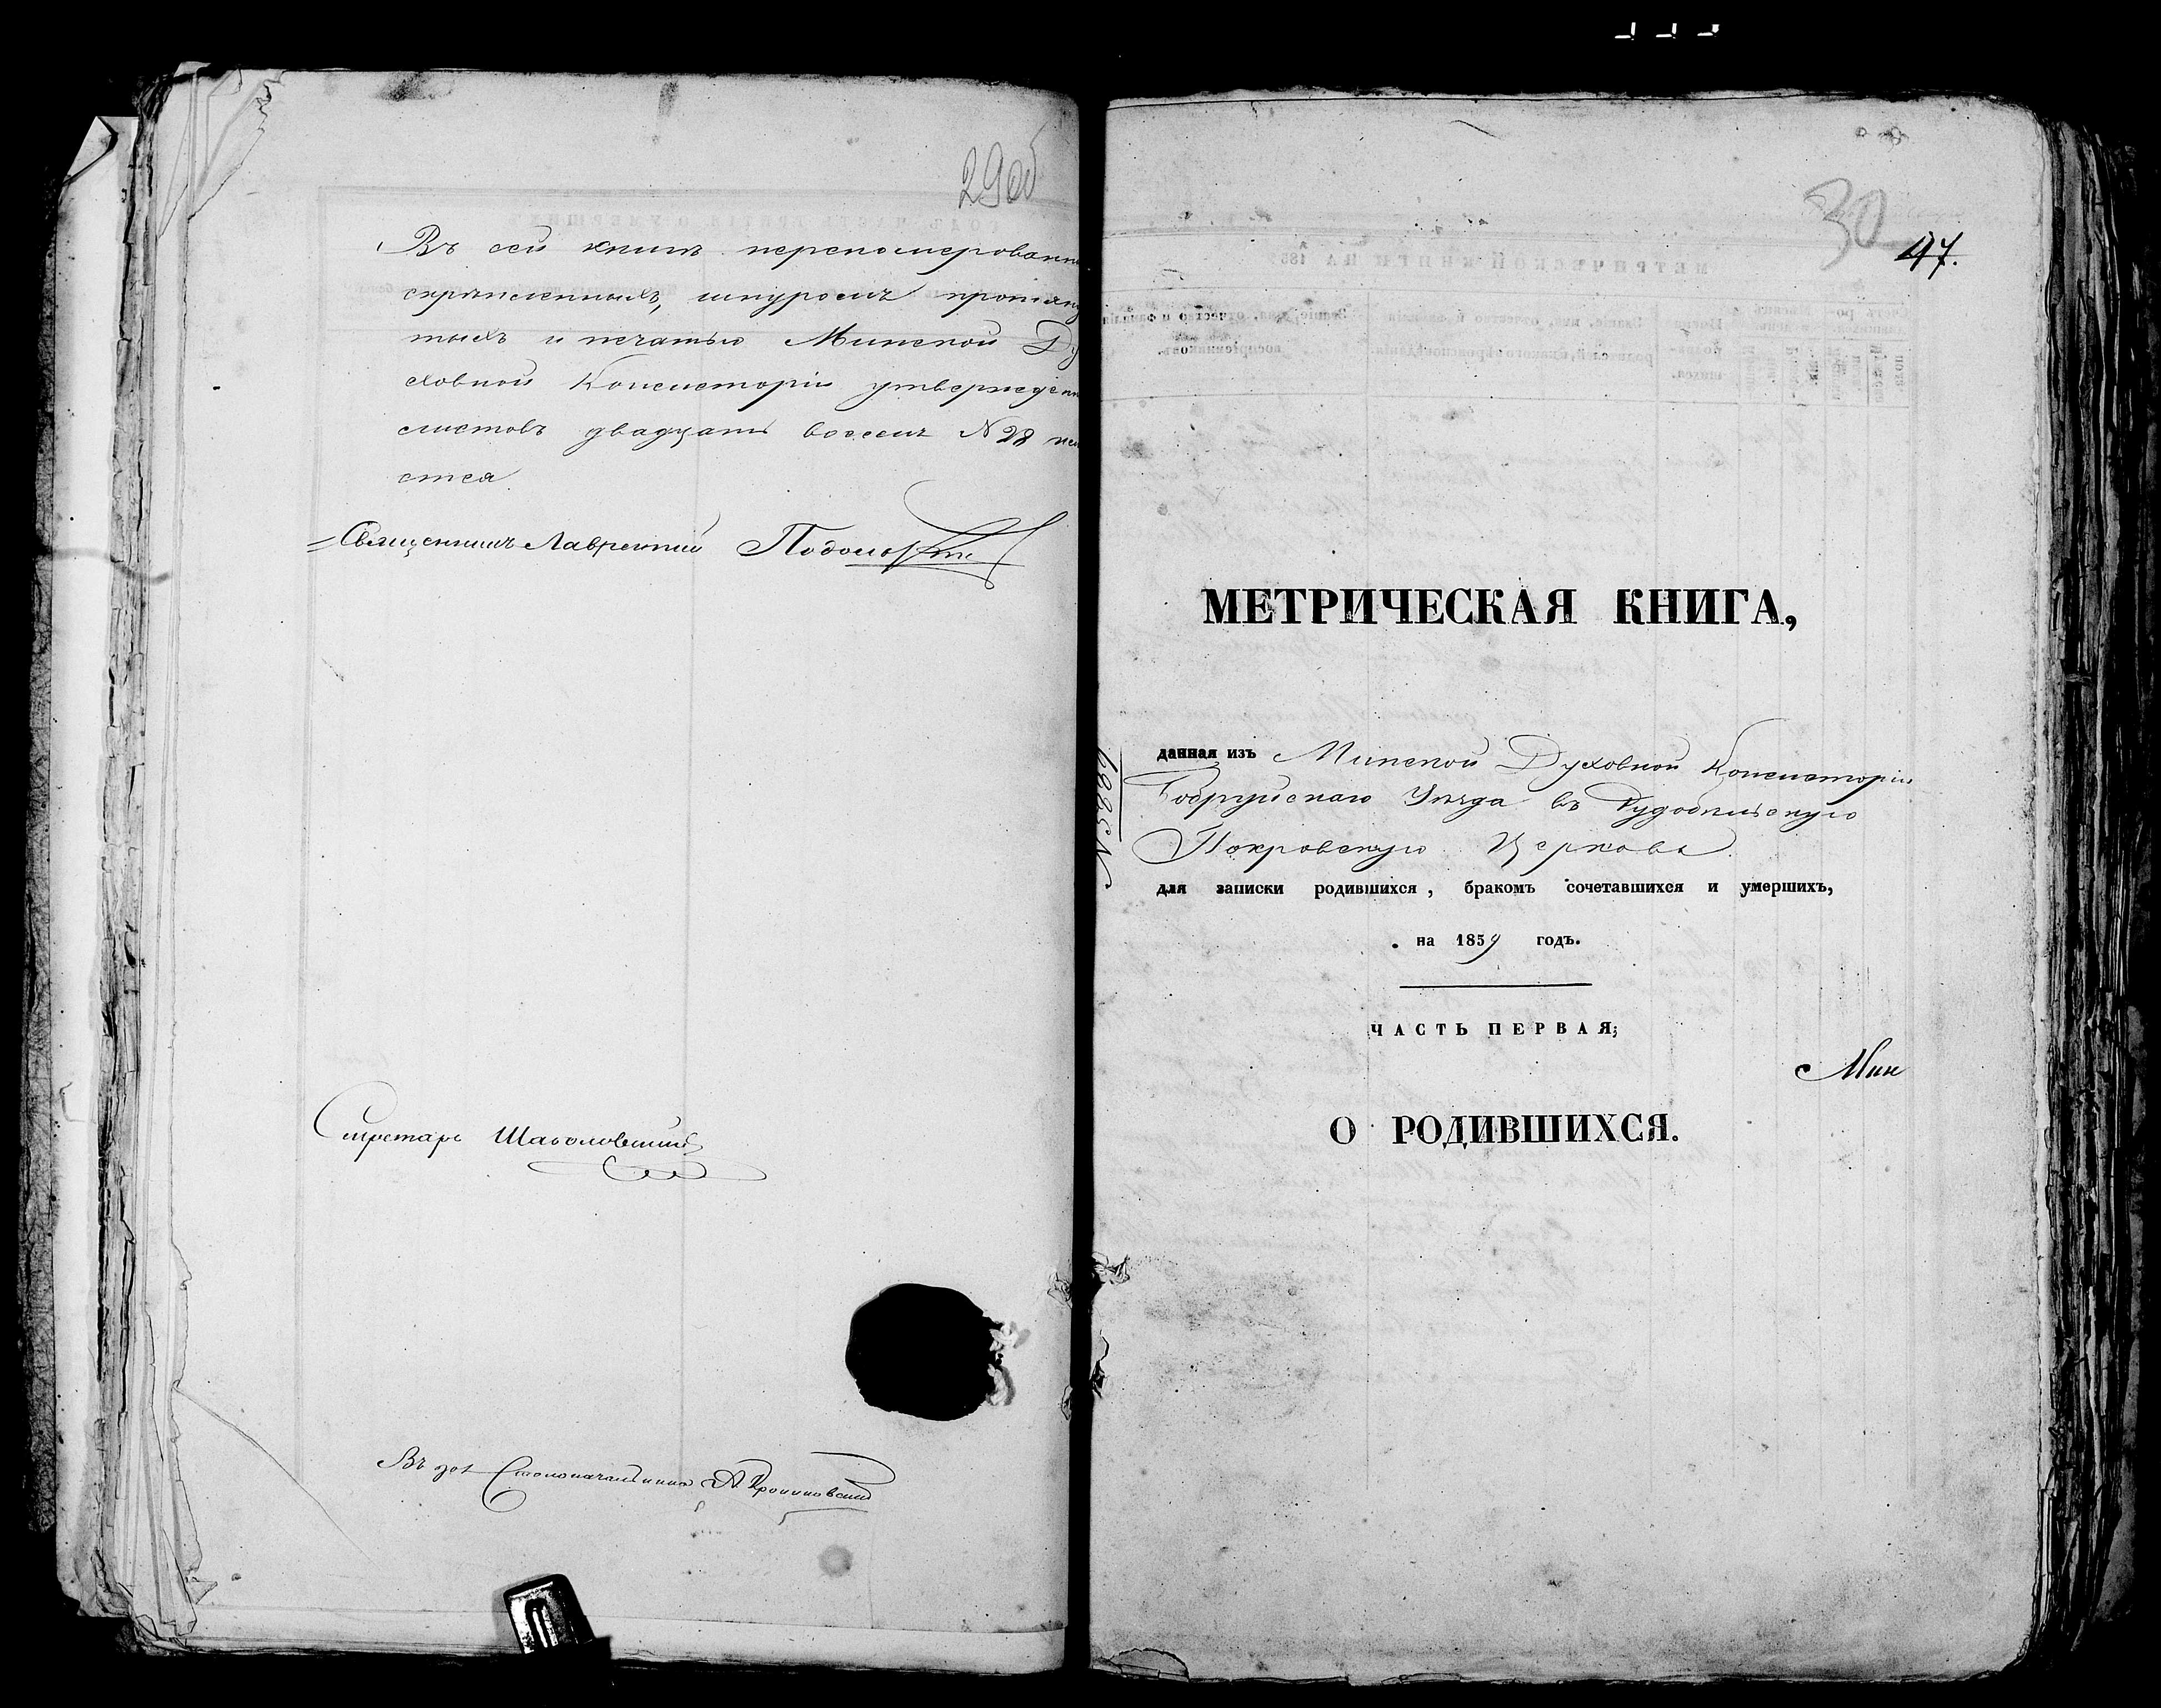 29 об
Въ сей книгѣ переномерованн
скрѣпленныхъ, шнуромъ протяну
тыхъ и печатью Минской Ду
ховной Консисторіи утвержденн
листовъ двадцать восемь N 28
ется
Священникъ Лаврентий
Секретарь
Въ дол. Столоначальника А.
30
47.
МЕТРИЧЕСКАЯ КНИГА,
данная изъ Минской Духовной Консисторіи
Бобруйскаго Уѣзда въ Рудобѣльскую
Покровскую Церковь
для записки родившихся, бракомъ сочетавшихся и умершихъ,
на 1859 годъ.
ЧАСТЬ ПЕРВАЯ;
Мин
О РОДИВШИХСЯ.